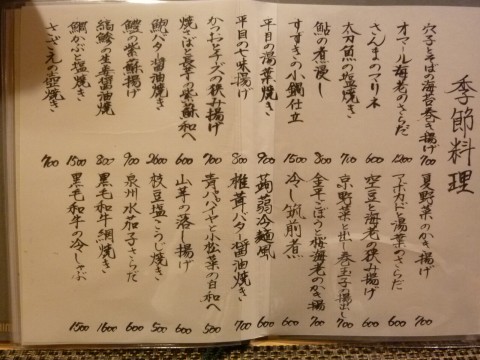 季節料理
穴子とそばの海苔巻き揚げ 700
オマール海老のさらだ 1200
さんまのマリネ 600
太刀魚の塩焼き 700
鮎の煮浸し 800
すずきの小鍋仕立 1500
平目の湯葉焼き 900
平目の七味揚げ 800
かつおとチーズの挟み揚げ 700
焼さばと長芋の紫蘇和へ 600
鮑バタ醤油焼き 2600
鱧の紫蘇揚げ 900
縞鯵の生姜醤油焼き 800
鯛かぶと塩焼き 1500
さざえの壺焼き 700
夏野菜のかき揚げ 700
アボカドと湯葉のさらだ 600
空豆と海老の挟み揚げ 600
京野菜と出し巻玉子の揚出し 700
金平ごぼうと桜海老のかき揚 700
冷し筑前煮 600
蒟蒻冷麺風 600
椎茸バター醤油焼き 700
青パパイヤと小松菜の白和へ 500
山芋の落し揚げ 600
枝豆塩こうじ焼き 500
泉州水茄子さらだ 600
黒毛和牛網焼き 1600
黒毛和牛の冷しゃぶ 1500